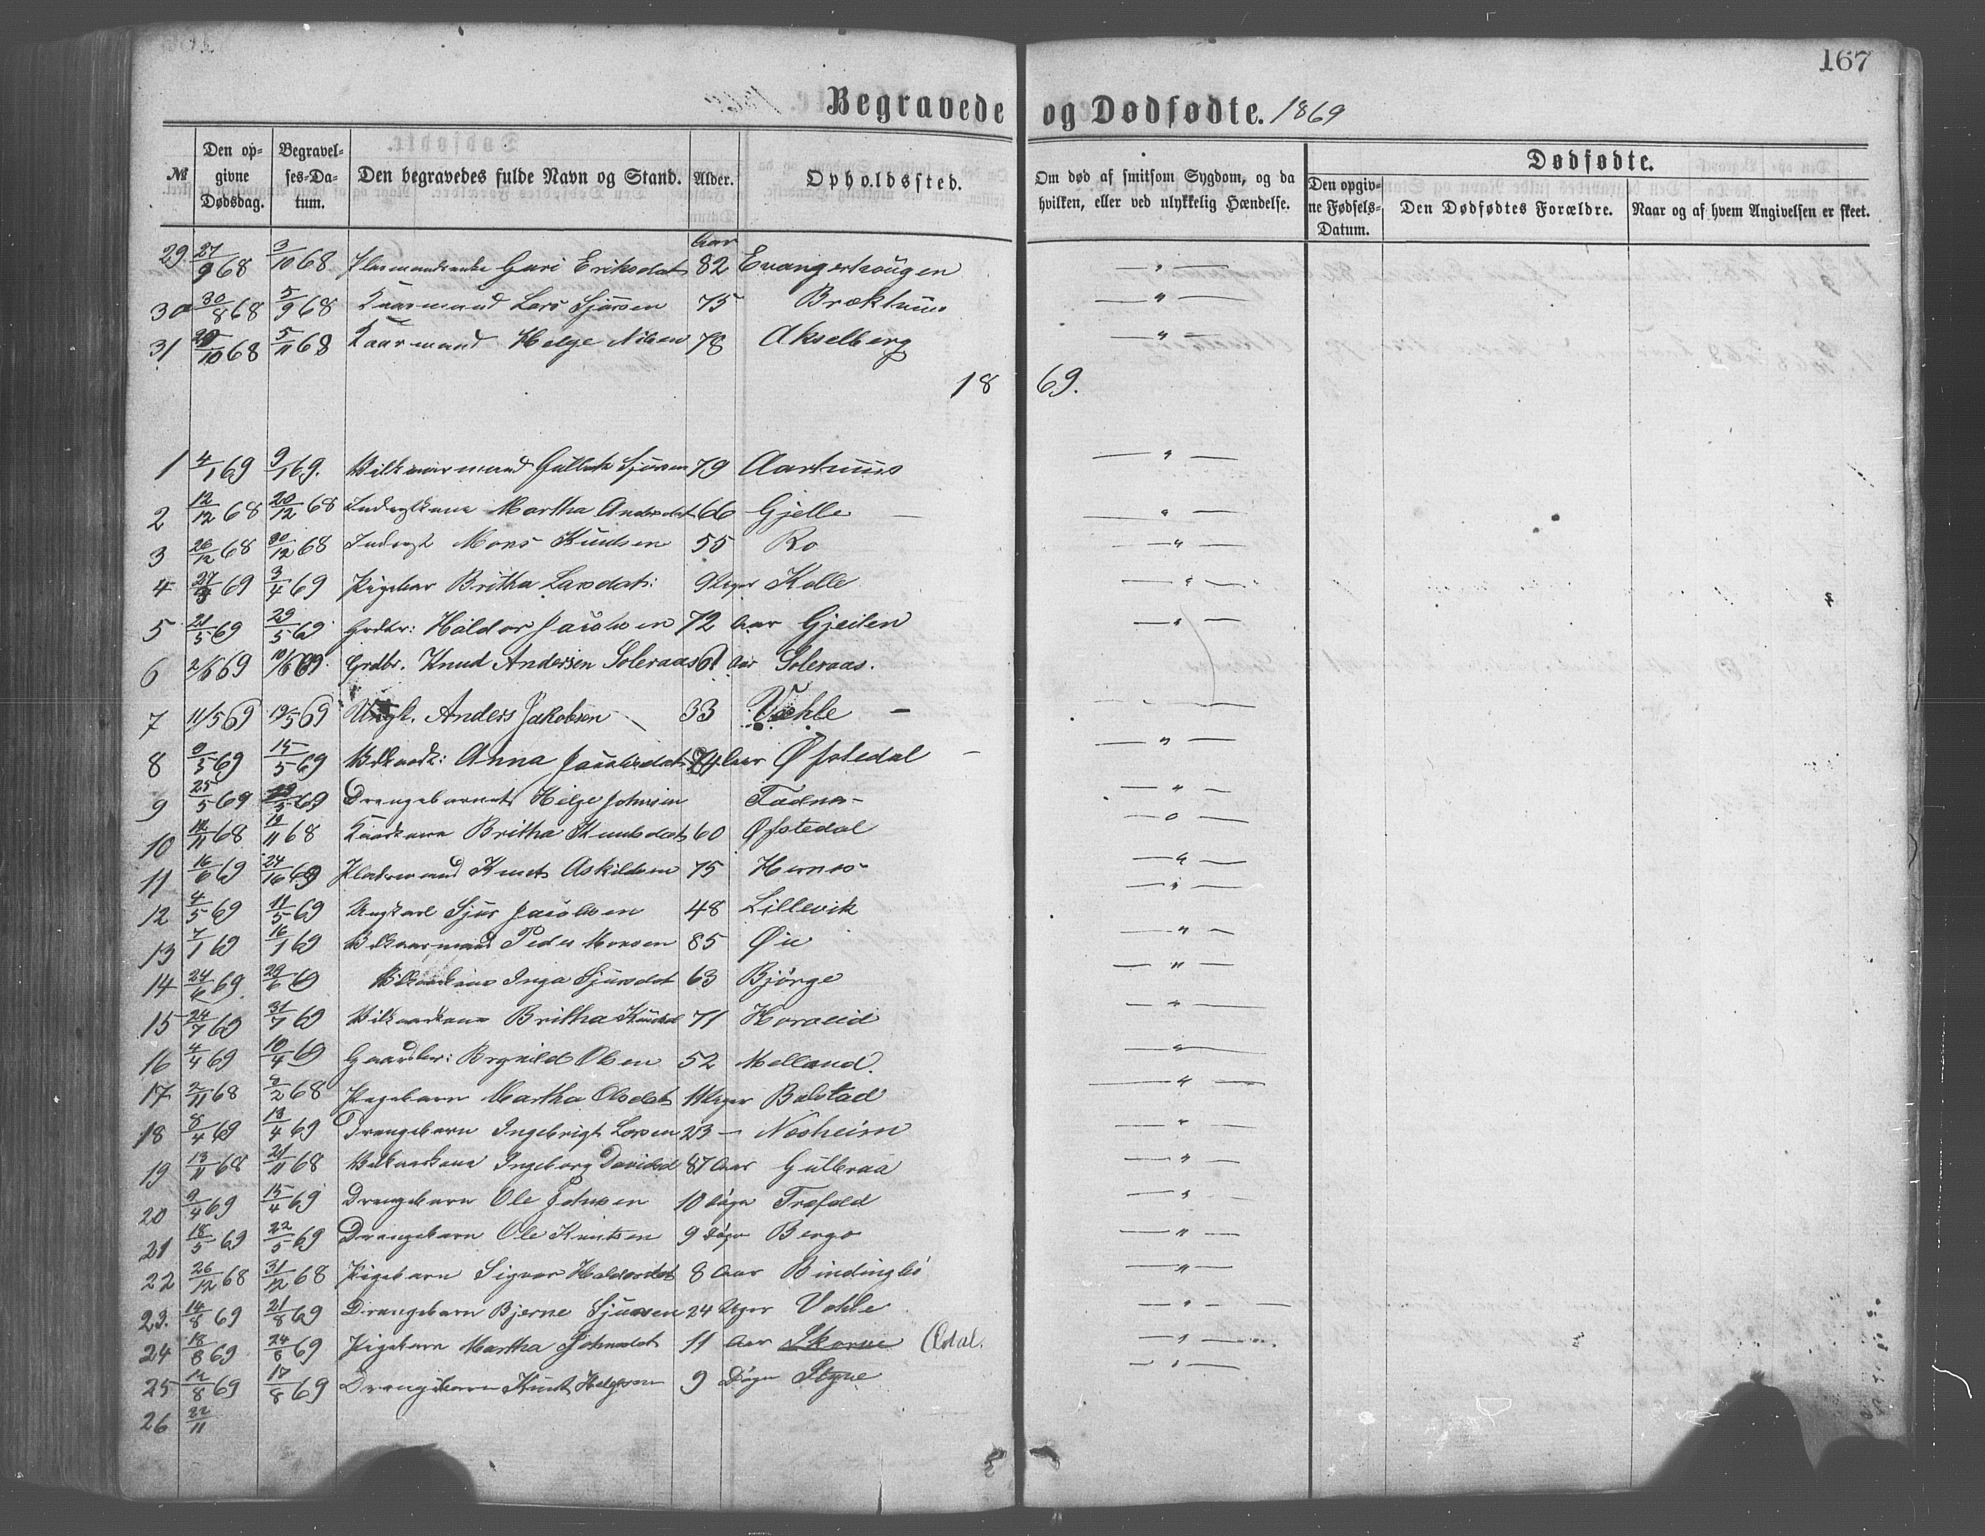 167
Begravede og Dødfødte. 1869
№ Den opgivne Dødsdag. Begravelses-Datum. Den begravedes fulde Navn og Stand. Alder. Opholdssted. Om død af smitsom Sygdom, og da hvilken, eller ved ulykkelig Hændelse. Dødfødte. Den opgivne Fødsels-Datum. Den Dødfødtes Forældre. Naar og af hvem Angivelsen er skeet.
Aar
29. 27/9 68 3/10 68 Guri Eriksdat 82 Evangerhougen — " —
30 30/8 68 5/9 68 Kaarmand Lars Sjursen 75 Brækhuus — " —
31 /10 68 5/11 68 Kaarmand Helge Nilsen 78 Akselberg — " —
18 69.
1 4/1 69 9/1 69. Vilkaarmand Sjursen 79 Aarhuus — " —
2 12/12 68 20/12 68 Martha Andersdat 66 Gjelle — — " —
3 26/12 68 30/12 68 Inderst Mons Knudsen 55 Ro — " —
4 27/ 69 3/4 69 Pigebar Britha Larsdat: 9 Uger Kolle — " —
5 21/5 69 29/5 69 Grdbr: Haldor Jacobsen 72 Aar Gjeilen — " —
6 2/6 69 10/6 69. Grdbr. Knud Andersen Soleraas 61 Aar Soleraas.
7 11/5 69 19/5 69 Ungk. Anders Jakobsen 33 Væhle — — " —
8 9/5 69 15/5 69 Anna Jacobsdat 84 Aar Øfstedal — — " —
9 25/5 69 /5 69 Drengebarnet Helge Johnsen Fadnes — " —
10 12/11 68 19/11 68 Kaarkone Britha Knudsdat 60 Øfstedal — " —
11 16/6 69 24/ 69 Pladsmand Knut Askildsen 75 Hernes — " —
12 4/5 69 11/5 69 Ungkarl Sjur Jacobsen 48 Lillevik — " —
13 7/1 69 16/1 69 Vilkaarmand Peder Monsen 85 Øie — " —
14 24/6 69. 29/6 69 Vilkaarkone Inga Sjursdat 63 Bjørge — " —
15 24/7 69 31/7 69 Vilkaarkone Britha Knudsd 71 Horveid — " —
16 4/4 69 10/4 69 Gaardbr: Brynild Olsen 52 Melland. — " —
17 2/11 68 /2 68 Pigebarn Martha Olsdat 11 Uger Bolstad — " —
18 8/4 69 13/4 69 Drengebarn Ingebrigt Larsen 23 — Nesheim — " —
19 13/11 68 21/11 68 Vilkaarkone Ingeborg Davidsd 87 Aar Gulbraa — " —
20 9/4 69 15/4 69 Drengebarn Ole Johnsen 10 Døgn Trefald — " —
21 18/5 69 22/5 69 Drengebarn Ole Knutsen 9 Døgn Bergo — " —
22 26/12 68 31/12 68 Pigebarn Sigvor Haldorsdat 8 Aar Bindingbø — " —
23. 14/8 69 21/8 69 Drengebarn Bjerne Sjursen 24 Uger Vehle — " —
24 18/8 69 24/8 69 Pigebarn Martha Johnsdat 11 Aar Skorve Ødal. — " —
25 12/8 69 17/8 69 Drengebarn Knut Helgesen 9 Døgn Styve — " —
26 22/11